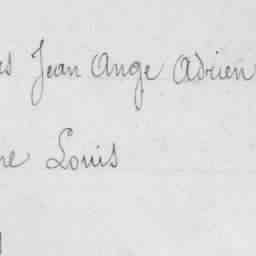 Jean Ange Adrien
Louis